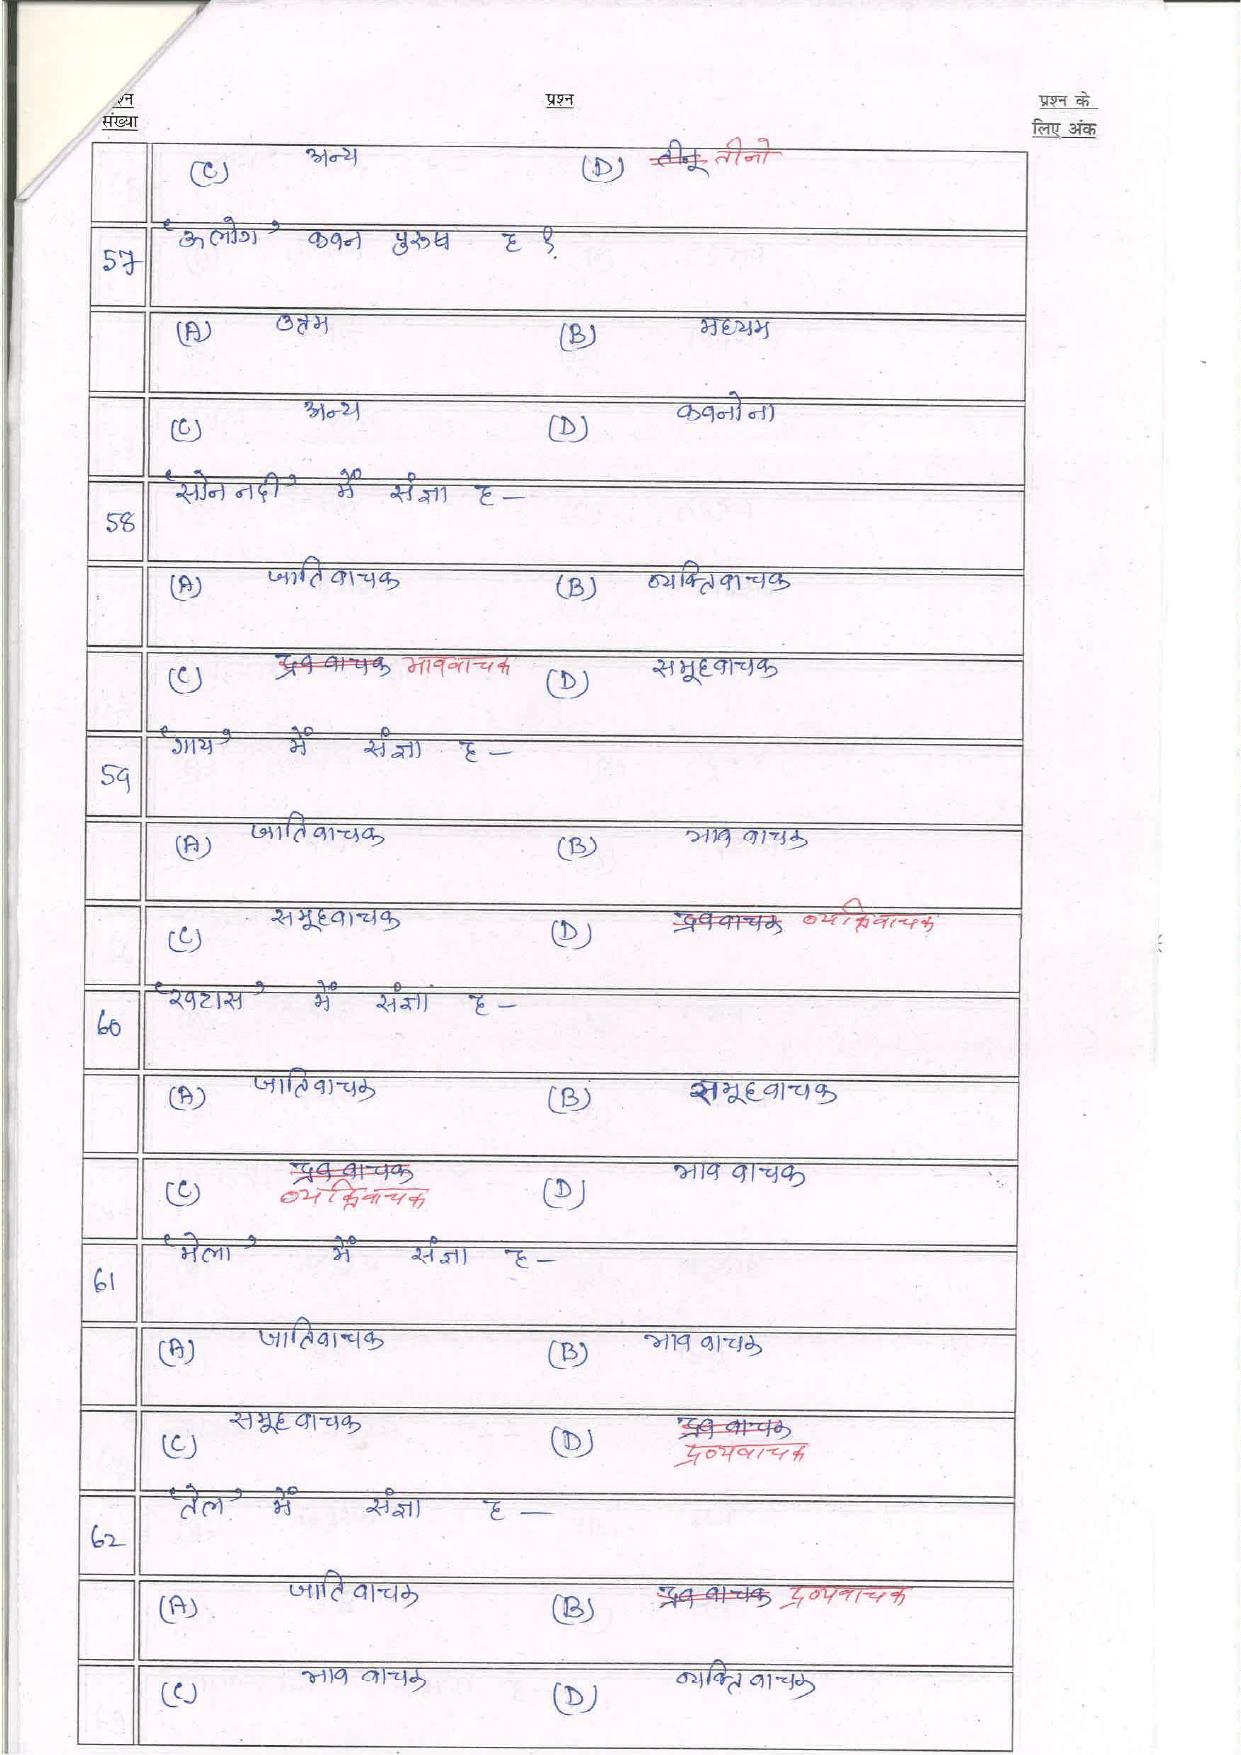 प्रश्न प्रश्न के
संख्या लिए अंक
(C) अन्य (D) तीनू तीनो
57 'ऊ लोग' कवन पुरुष ह ?
(A) उत्तम (B) मध्यम
(C) अन्य (D) कवनो ना
58 'सोन नदी' में संज्ञा ह -
(A) जातिवाचक (B) व्यक्तिवाचक
(C) द्रव वाचक भाववाचक (D) समूहवाचक
59 'गाय' में संज्ञा ह -
(A) जातिवाचक (B) भाव वाचक
(C) समूहवाचक (D) द्रव वाचक व्यक्तिवाचक
60 'खटास' में संज्ञा ह -
(A) जातिवाचक (B) समूहवाचक
(C) द्रव वाचक (D) भाव वाचक
व्यक्तिवाचक
61 'मेला' में संज्ञा ह -
(A) जातिवाचक (B) भाव वाचक
(C) समूह वाचक (D) द्रव वाचक
द्रव्यवाचक
62 'तेल' में संज्ञा ह -
(A) जातिवाचक (B) द्रव वाचक द्रव्यवाचक
(C) भाव वाचक (D) व्यक्ति वाचक